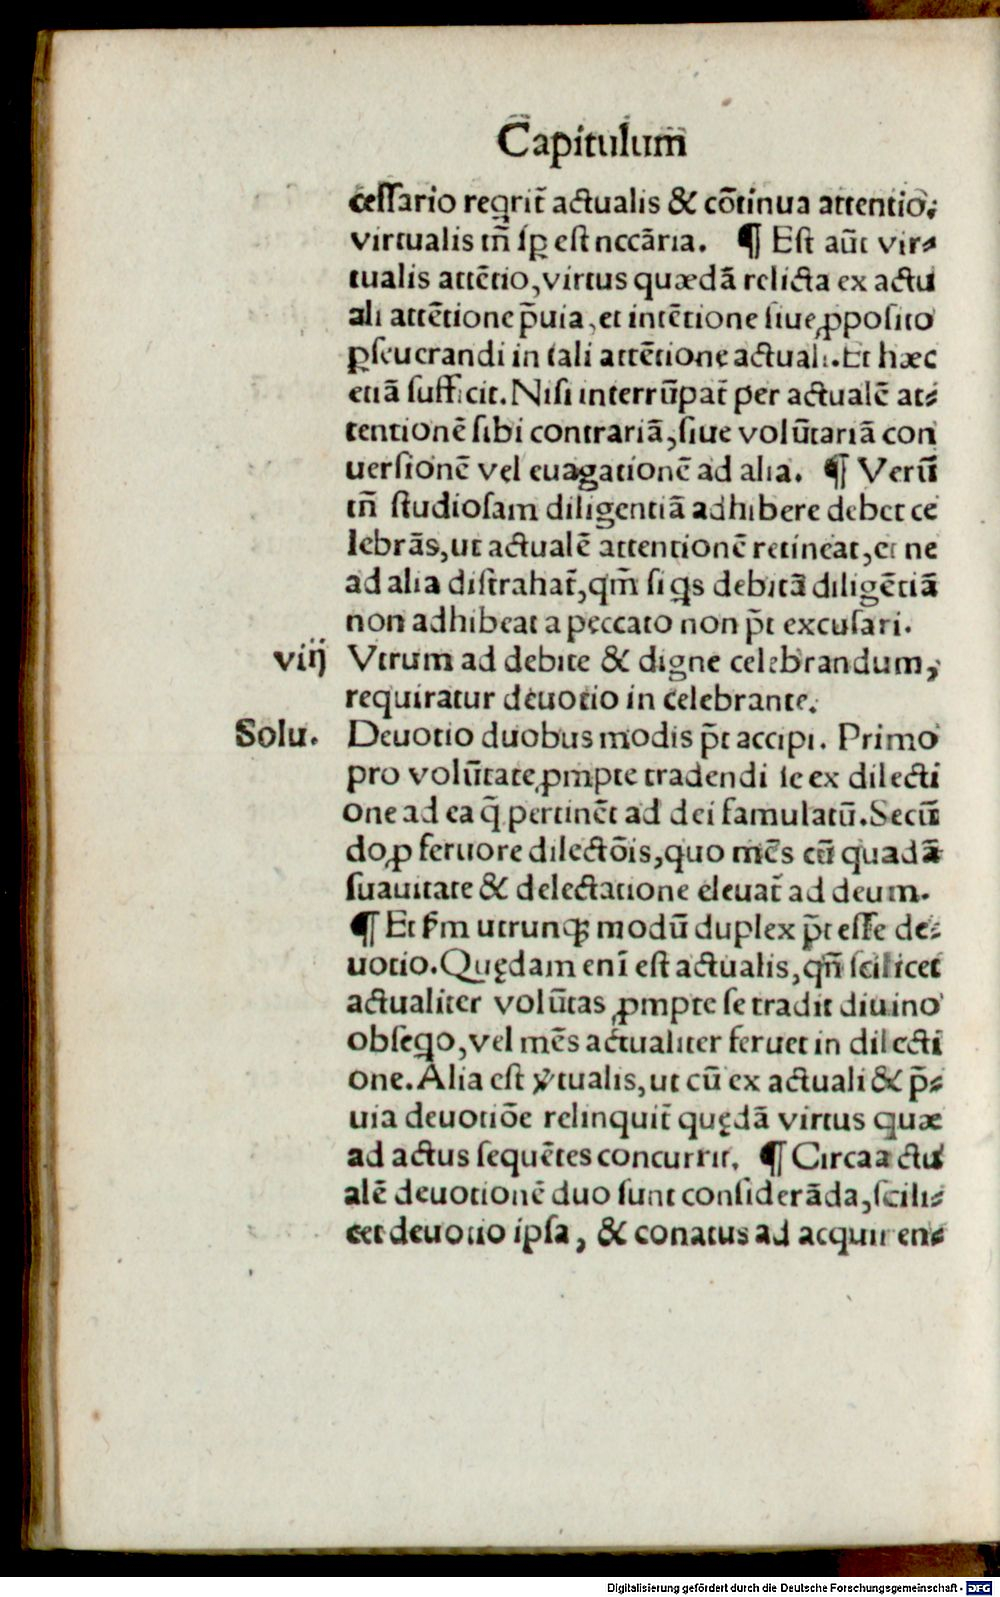 Capitulum̄
cessario reqrit᷑ actualis & cōtinua attentio,
virtualis tn̄ sꝑ est nccāria. ¶ Est aūt vir⸗
tualis attētio, virtus quædā relicta ex actu
ali attētione p̄uia, et intētione siue ꝓposito
ꝑseuerandi in tali attētione actuali. Et hæc
etiā sufficit. Nisi interrūpat᷑ per actualē at⸗
tentionē sibi contrariā, siue volūtariā con
uersionē vel euagationē ad alia. ¶ Verū
tn̄ studiosam diligentiā adhibere debet ce
lebrās, ut actualē attentionē retineat, et ne
ad alia distrahat᷑, qm̄ si qs debitā diligētiā
non adhibeat a peccato non p̄t excusari.
viij Vtrum ad debite & digne celebrandum,
requiratur deuotio in celebrante.
Solu. Deuotio duobus modis p̄t accipi. Primo
pro volūtate ꝓmpte tradendi se ex dilecti
one ad ea q̄ pertinēt ad dei famulatū. Secū
do ꝓ feruore dilectōis, quo mēs cū quadā
suauitate & delectatione eleuat᷑ ad deum.
¶ Et ẜm utrunqꝫ modū duplex p̄t esse de⸗
uotio. Quędam enī est actualis, qn̄ scilicet
actualiter volūtas ꝓmpte se tradit diuino
obseqo, vel mēs actualiter feruet in dilecti
one. Alia est v̓tualis, ut cū ex actuali & p̄⸗
uia deuotiōe relinquit᷑ quędā virtus quæ
ad actus sequētes concurrit. ¶ Circa actu
alē deuotionē duo sunt considerāda, scili⸗
cet deuotio ipsa, & conatus ad acquiren⸗
Digitalisierung gefördert durch die Deutsche Forschungsgemeinschaft - DFG